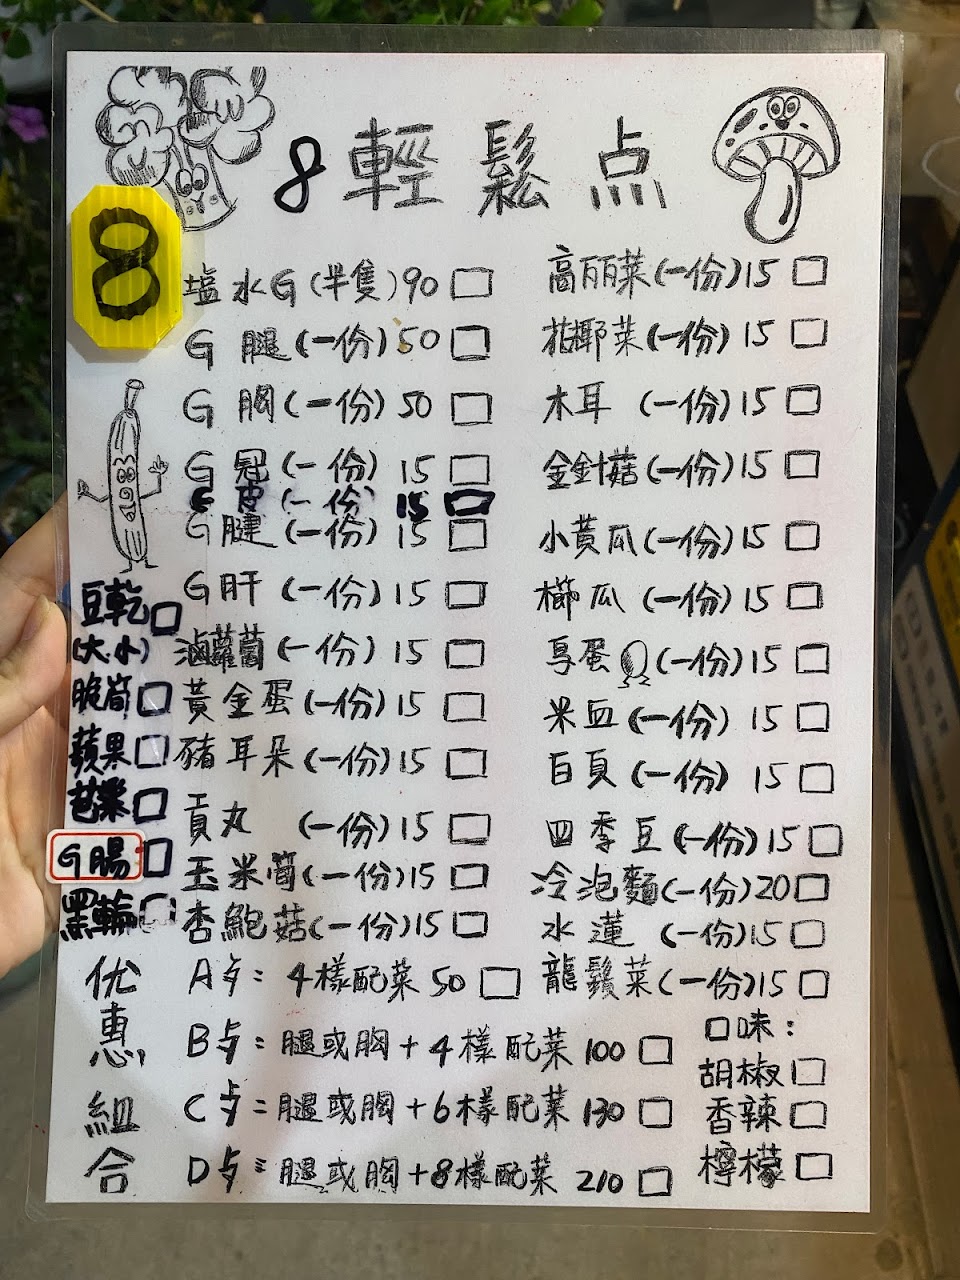 8輕鬆点
8
塩水G(半隻)90
G腿(一份)50
G胸(一份)50
G冠(一份)15
G皮(一份)15
G腱(一份)15
G肝(一份)15
滷蘿蔔(一份)15
黃金蛋(一份)15
豬耳朵(一份)15
貢丸(一份)15
玉米筍(一份)15
杏鮑菇(一份)15
豆乾
(大.小)
脆筍
蘋果
芭樂
G腸
黑輪
高丽菜(一份)15
花椰菜(一份)15
木耳(一份)15
金針菇(一份)15
小黃瓜(一份)15
櫛瓜(一份)15
享蛋(一份)15
米血(一份)15
百頁(一份)15
四季豆(一份)15
冷泡麵(一份)20
水蓮(一份)15
龍鬚菜(一份)15
优惠組合
A歺:4樣配菜50
B歺:腿或胸+4樣配菜100
C歺:腿或胸+6樣配菜130
D歺:腿或胸+8樣配菜210
口味:
胡椒
香辣
檸檬